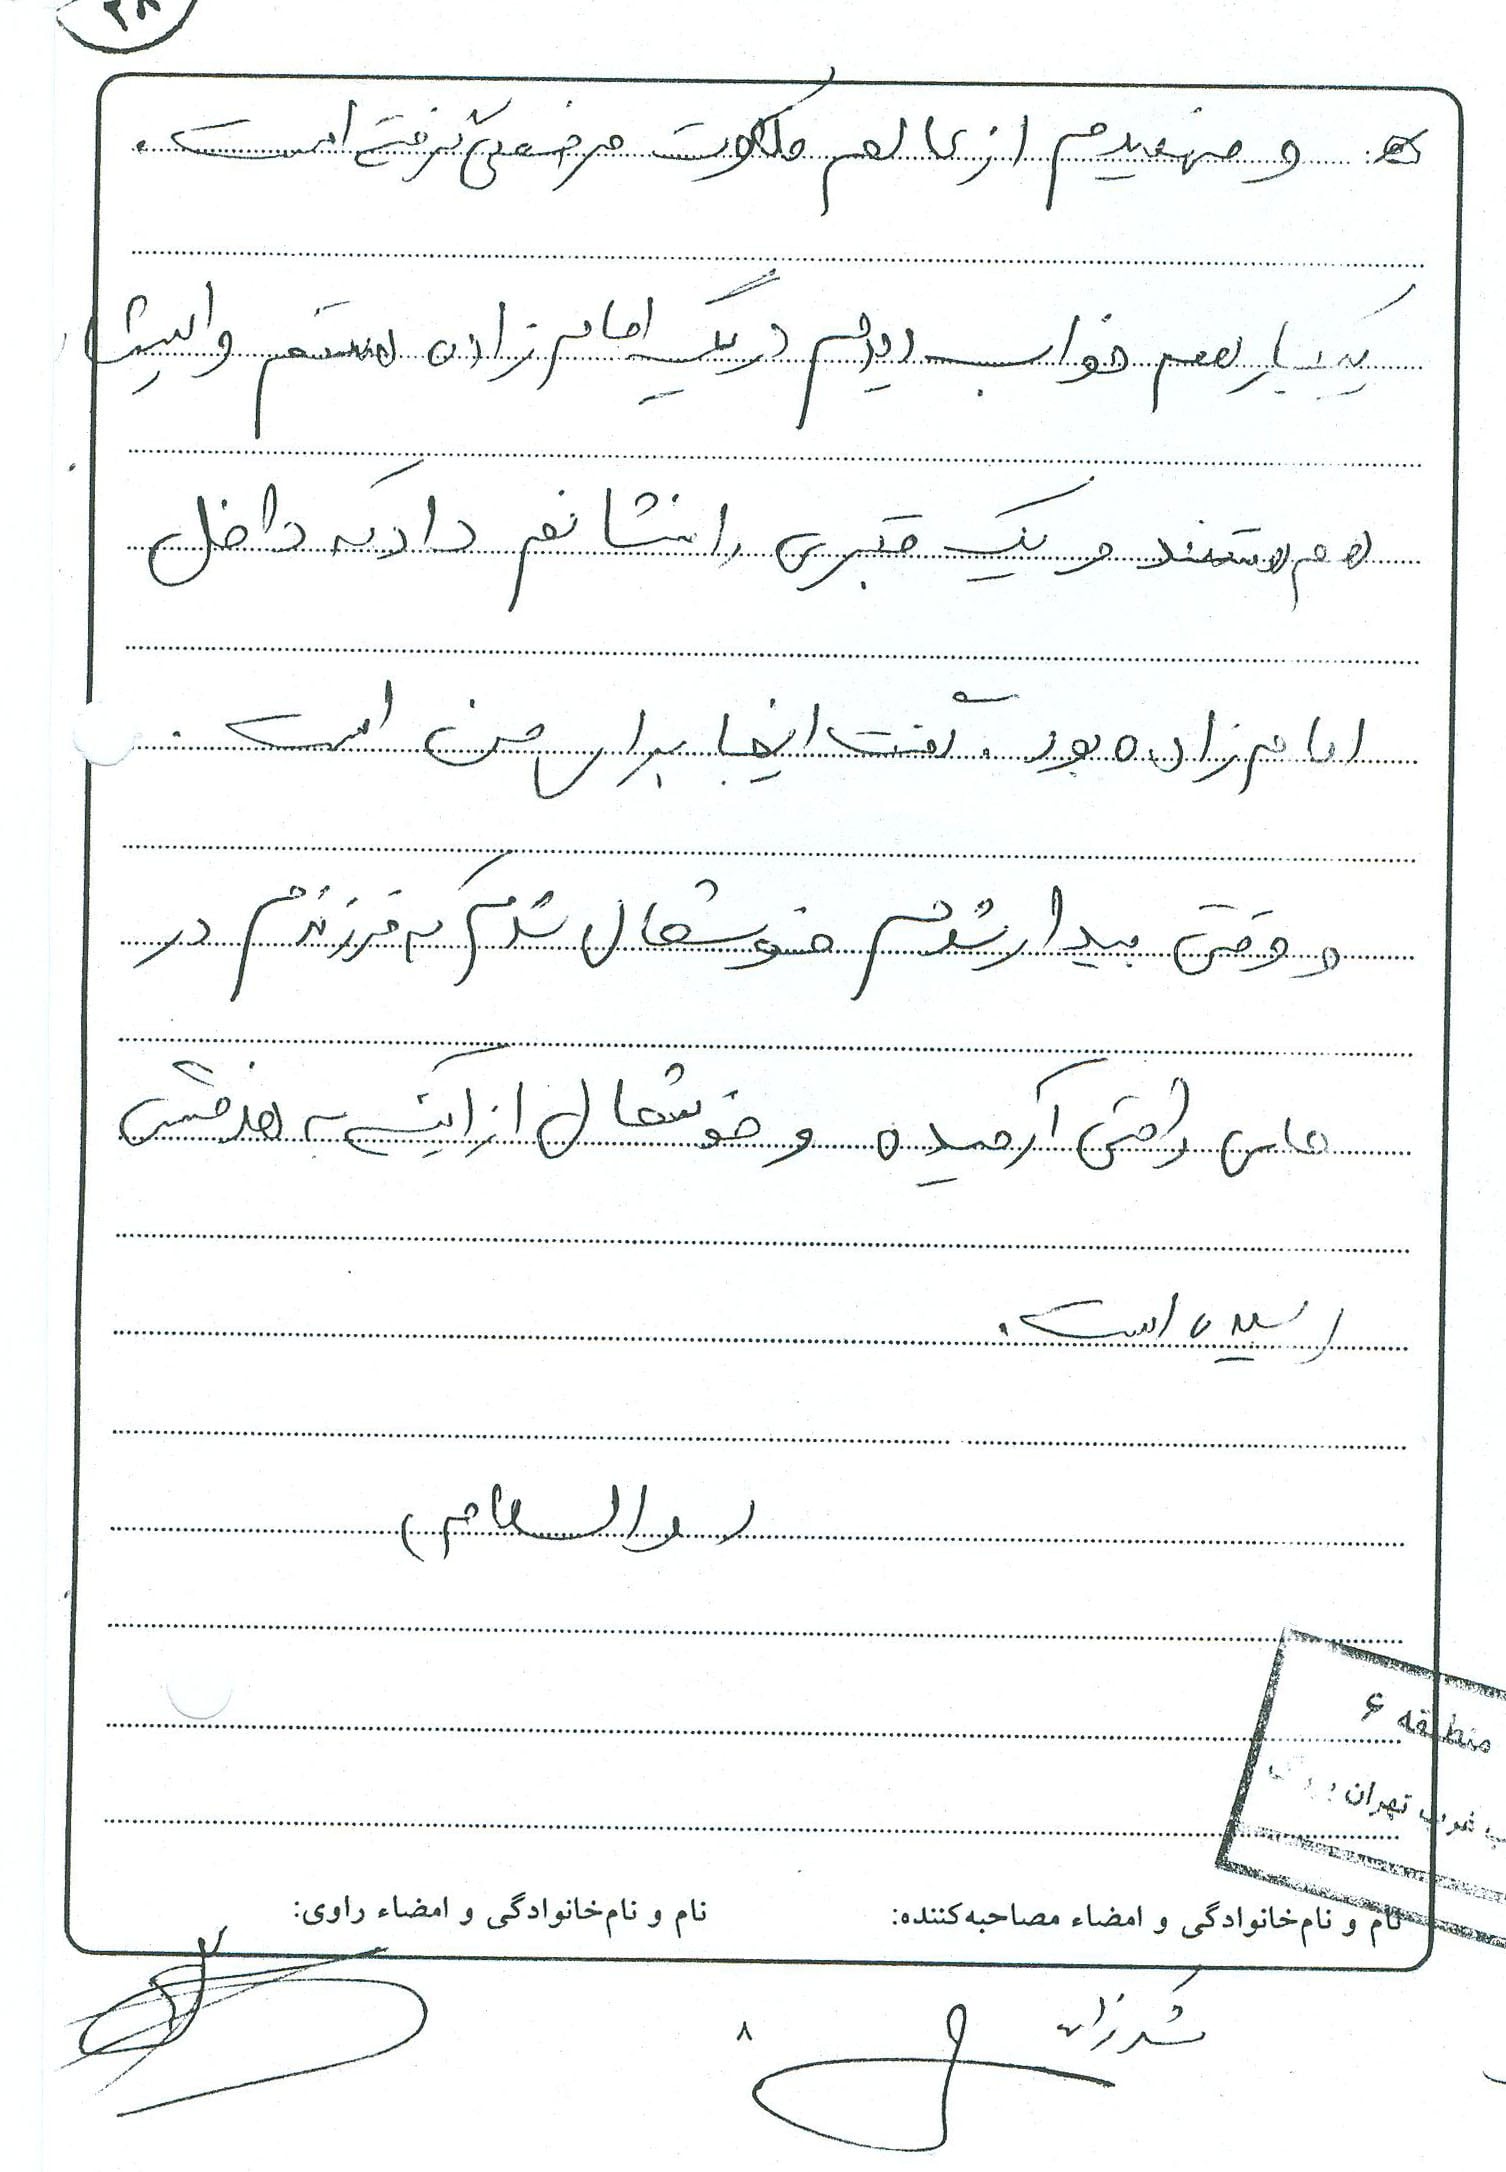 ۲۸
و فهمیدم از عالم ملکوت مرخصی گرفته است.
یکبار هم خواب دیدم در یک امام زاده هستم و ایشان
هم هستند و یک قبری را نشانم داد که داخل
امام زاده بود. گفت اینجا برای من است.
و وقتی بیدار شدم خوشحال شدم که فرزندم در
جای راحتی آرمیده و خوشحال از اینکه به هدفش
رسیده است.
والسلام
منطقه ۶
غرب تهران
نام و نام‌خانوادگی و امضاء مصاحبه‌کننده: نام و نام‌خانوادگی و امضاء راوی:
۸